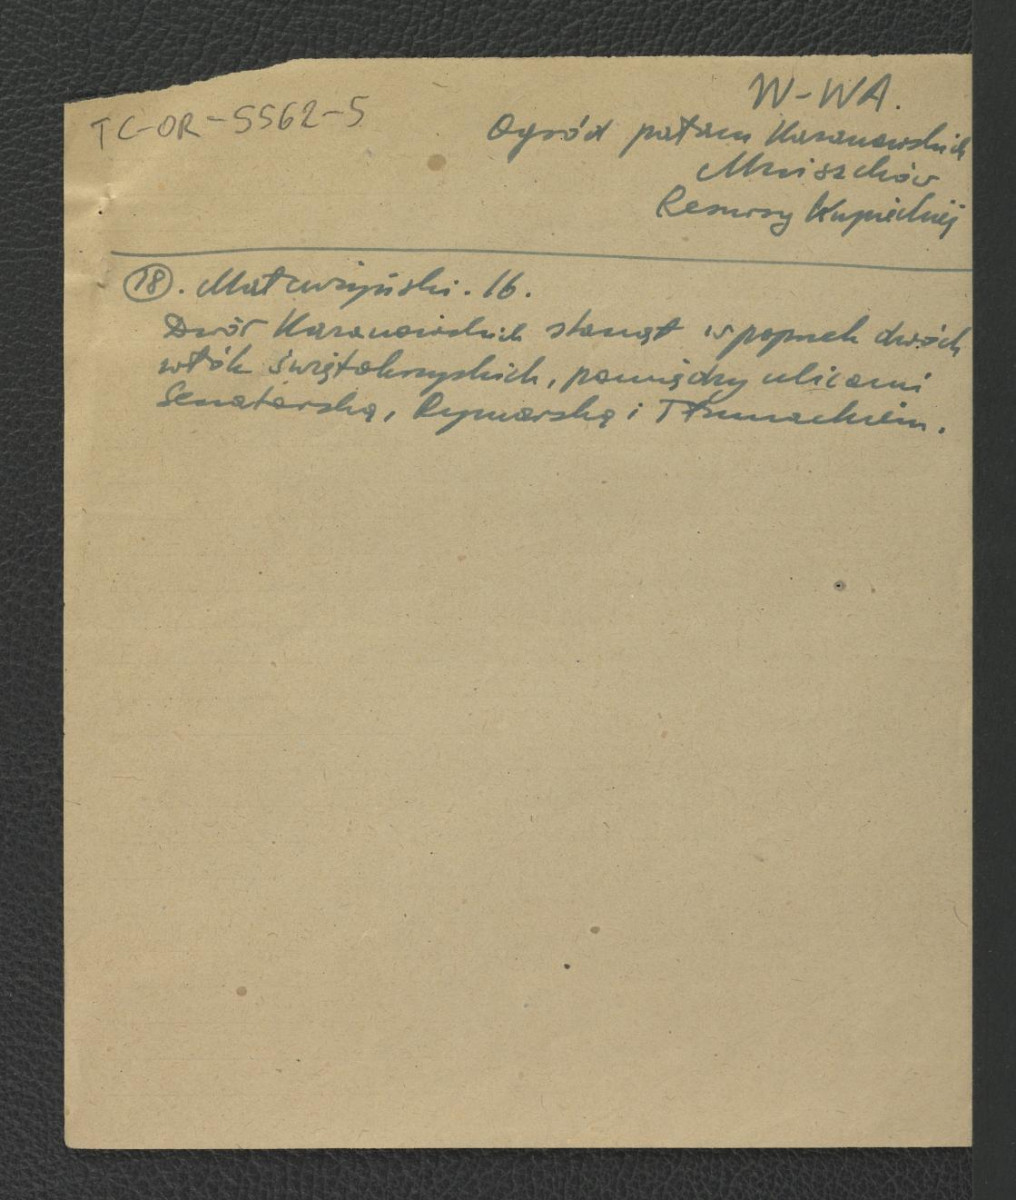 TC-OR-5562-5
W-WA.
Ogród pałacu Kazanowskich
Mniszchów
Resursy Kupieckiej
18. Matuszyński. 16.
Dwór Kazanowskich stanął w poprzek dwóch
włók świętokrzyskich, pomiędzy ulicami
Senatorską, Rymarską i Tłumackiem.